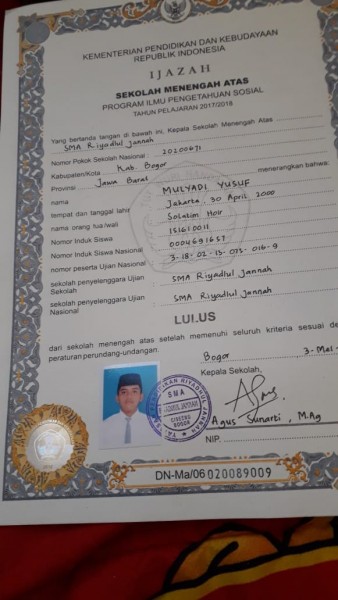 KEMENTERIAN PENDIDIKAN DAN KEBUDAYAAN
REPUBLIK INDONESIA
IJAZAH
SEKOLAH MENENGAH ATAS
PROGRAM ILMU PENGETAHUAN SOSIAL
TAHUN PELAJARAN 2017/2018
Yang bertanda tangan di bawah ini, Kepala Sekolah Menengah Atas
SMA Riyadlul Jannah
Nomor Pokok Sekolah Nasional : 20200671
Kabupaten/Kota Kab. Bogor
Provinsi Jawa Barat menerangkan bahwa:
nama MULYADI YUSUF
tempat dan tanggal lahir Jakarta, 30 April 2000
nama orang tua/wali
Nomor Induk Siswa 151610011
Nomor Induk Siswa Nasional 0004691657
nomor peserta Ujian Nasional 3-18-02-13-073-016-9
sekolah penyelenggara Ujian Sekolah SMA Riyadlul Jannah
sekolah penyelenggara Ujian Nasional SMA Riyadlul Jannah
LULUS
dari sekolah menengah atas setelah memenuhi seluruh kriteria sesuai de
peraturan perundang-undangan.
Bogor 3 Mei
Kepala Sekolah,
SMA
BOGOR
Agus Sunarti, M.Ag
NIP.
DN-Ma/06 020089009